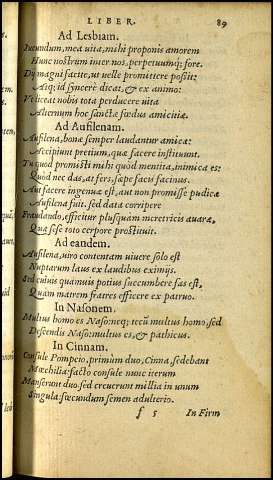 LIBER. 89
Ad Lesbiam.
Iucundum, mea uita, mihi proponis amorem
Hunc nostrum inter nos, perpetuumq; fore.
Dij magni facite, ut uere promittere possit:
Atq; id syncere dicat, & ex animo:
Vt liceat nobis tota perducere uita
Alternum hoc sanctæ fœdus amicitiæ.
Ad Aufilenam.
Aufilena, bonæ semper laudantur amicæ:
Accipiunt pretium, quæ facere instituunt.
Tu quod promisti mihi quod mentita, inimica es:
Quod nec das, at fers, sæpe facis facinus.
Aut facere ingenuæ est, aut non promisse pudicæ
Aufilena fuit. sed data corripere
Fraudando, efficitur plusquàm meretricis auaræ,
Quæ sese toto corpore prostituit.
Ad eandem.
Aufilena, uiro contentam uiuere solo est
Nuptarum laus ex laudibus eximijs.
Sed cuiuis quamuis potius succumbere fas est,
Quàm matrem fratres efficere ex patruo.
In Nasonem.
Multus homo es Naso: neq; tecũ multus homo, sed
Descendis Naso: multus es, & pathicus.
In Cinnam.
Consule Pompeio, primùm duo, Cinna, sedebant
Mœchilia: facto consule nunc iterum
Manserunt duo. sed creuerunt millia in unum
Singula: fœcundum semen adulterio.
f 5 In Firm